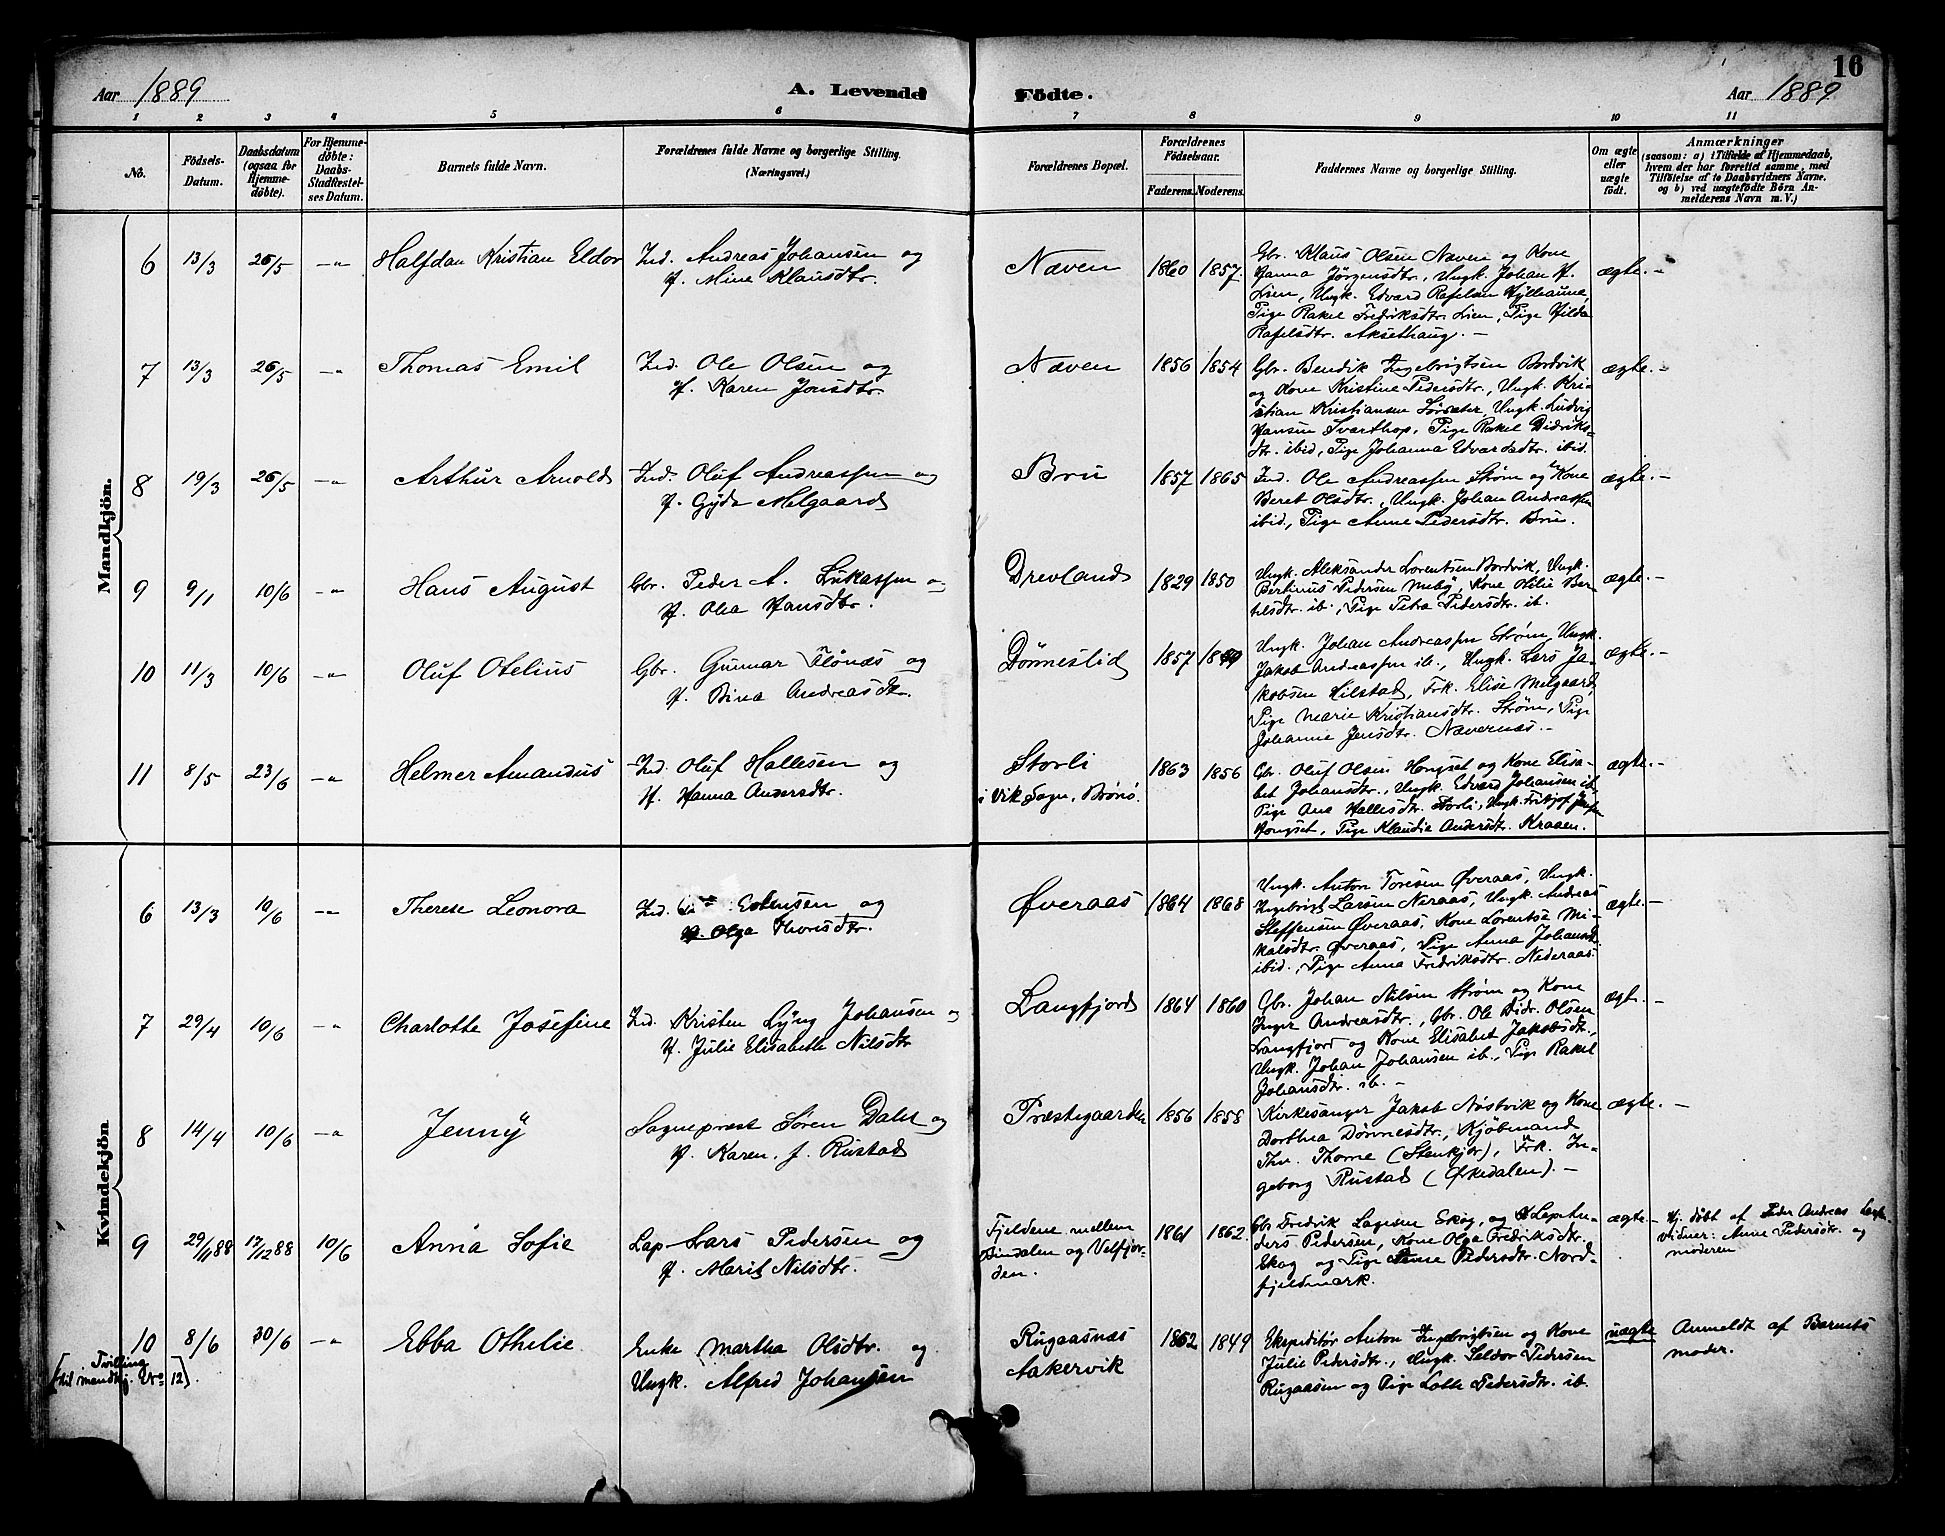 16
Aar 1889
A. Levende Födte.
Aar 1889
1 2 3 4 5 6 7 8 9 10 11
No.
Födsels-Datum.
Daabsdatum (ogsaa for Hjemme-döbte).
For Hjemme-döbte: Daabs-Stadfæstel-ses Datum.
Barnets fulde Navn.
Forældrenes fulde Navne og borgerlige Stilling. (Næringsvei.)
Forældrenes Bopæl.
Forældrenes Födselsaar.
Faderens. Moderens.
Faddernes Navne og borgerlige Stilling.
Om ægte eller uægte födt.
Anmærkninger
(saasom: a) i Tilfælde af Hjemmedaab,
hvem der har forrettet samme, med
Tilföielse af to Daabsvidners Navne,
og b) ved uægtefödte Börn An-
melderens Navn m. V.)
Mandkjön.
6 13/3 26/5 -"- Halfdan Kristian Eldor
Ind. Andreas Johansen og
H. Mine Klausdtr.
Næven 1860 1857
Gbr. Klaus Olsen Næven og Kone
Hanna Jörgensdtr., Ungk. Johan H.
Lien, Ungk. Edvard Rafelsen Hylleaune,
Pige Rakel Fredriksdtr. Lien, Pige Hilda
Rafelsdtr. Aksethaug. -
ægte. -
7 13/3 26/5 -"- Thomas Emil
Ind. Ole Olsen og
H. Karen Jonsdtr.
Næven 1856 1854
Gbr. Bendik Ingebrigtsen Bordvik
og Kone Kristine Pedersdtr., Ungk. Kri-
stian Kristiansen Sørsæter, Ungk. Ludvig
Hansen Svarthop, Pige Rakel Didriks-
dtr. ibid, Pige Johanna Edvardsdtr. ibid.
ægte. -
8 19/3 26/5 -"- Arthur Arnold
Ind. Oluf Andreassen og
H. Gyda Melgaard
Bru 1857 1865
Ind. Ole Andreassen Strøm og Kone
Beret Olsdtr., Ungk. Johan Andreassen
ibid, Pige Anne Pedersdtr. Bru.
ægte. -
9 9/1 10/6 -"- Hans August
Gbr. Peder A. Lukassen o-
H. Olea Hansdtr.
Drevland 1829 1850
Ungk. Aleksander Lorentsen Bordvik, Ungk.
Bertinus Pedersen Meby, Kone Oelie Ber-
telsdtr. ib., Pige Petra Pedersdtr. ib.
ægte. -
10 11/3 10/6 -"- Oluf Otelius
Gbr. Gunnar Flönæs og
H. Bina Andreasdtr.
Dønneslid 1857 1849
Ungk. Johan Andreassen Strøm, Ungk.
Jakob Andreassen ib., Ungk. Lars Ja-
kobsen Hilstad, Frk. Elise Melgaard,
Pige Marie Kristiansdtr. Strøm, Pige
Johanne Jensdtr. Nævernæs. -
ægte. -
11 8/5 23/6 -"- Helmer Amandus
Ind. Oluf Hallesen og
H. Hanna Andersdtr.
Storli
i Vik Sogn, Brønö.
1863 1856
Gbr. Oluf Olsen Hongset og Kone Elisa-
bet Johansdtr., Ungk. Edvard Johansen ib.
Pige Ane Hallesdtr. Storli, Ungk. Fritjof
Hongset, Pige Klaudia Andersdtr. Kraaen.
ægte. -
Kvindekjön.
6 13/3 10/6 -"- Therese Leonora
Ind. Estensen og
H. Olga Thorisdtr.
Øveraas 1864 1868
Ungk. Anton Toresen Øveraas, Ungk.
Ingebrigt Larsen Neraas, Ungk. Andreas
Steffensen Øveraas, Kone Lorentse Mi-
kalsdtr. Øveraas, Pige Anna Johansdt.
ibid., Pige Anna Fredriksdtr. Nederaas.
ægte. -
7 29/4 10/6 -"- Charlotte Josefine
Ind. Kristen Lyng Johansen og
H. Julie Elisabeth Nilsdtr
Langfjord 1864 1860
Gbr. Johan Nilsen Strøm og Kone
Inger Andreasdtr., Gbr. Ole Didr. Olsen
Langfjord og Kone Elisabet Jakobsdtr.,
Ungk. Johan Johansen ib., Pige Rakel
Johansdtr. ib. -
ægt. -
8 14/4 10/6 -"- Jenny
Sogneprest Søren Dahl og
H. Karen, f. Rustad
Præstegaarden 1856 1858
Kirkesanger Jakob Nøstvik og Kone
Dorthea Dønnesdtr., Kjøbmand
Thv. Thorne (Stenkjær), Frk. In-
geborg Rustad (Ørkedalen). -
ægte. -
9 29/11 88 13/12 88 10/6 Anna Sofie
Lap Lars Pedersen og
H. Marit Nilsdtr.
Fjeldene mellem
Bindalen og Velfjor-
den.
1861 1862.
Gbr Fredrik Lagesen Skog, og Lap An-
ders Pedersen, Kone Olga Fredriksdtr.
Skog og Pige Anne Pedersdtr. Nord-
fjeldmark.
ægte -
Hj. döbt af Peder Andreas
vidner: Anne Pedersdtr. og
moderen
10 8/6 30/6 -"- Ebba Othelie
[Tvilling
til mandkj. No 12].
Enke Martha Olsdtr. og
Ungk. Alfred Johansen
Rugaasnæs
Aakervik
1862 1849
Ekspeditör Anton Ingebrigtsen og Kone
Julie Pedersdtr., Ungk. Seldor Pedersen
Rugaasen og Pige Lotte Pedersdtr. ib.
uægte
Anmeldt af Barnets
moder.